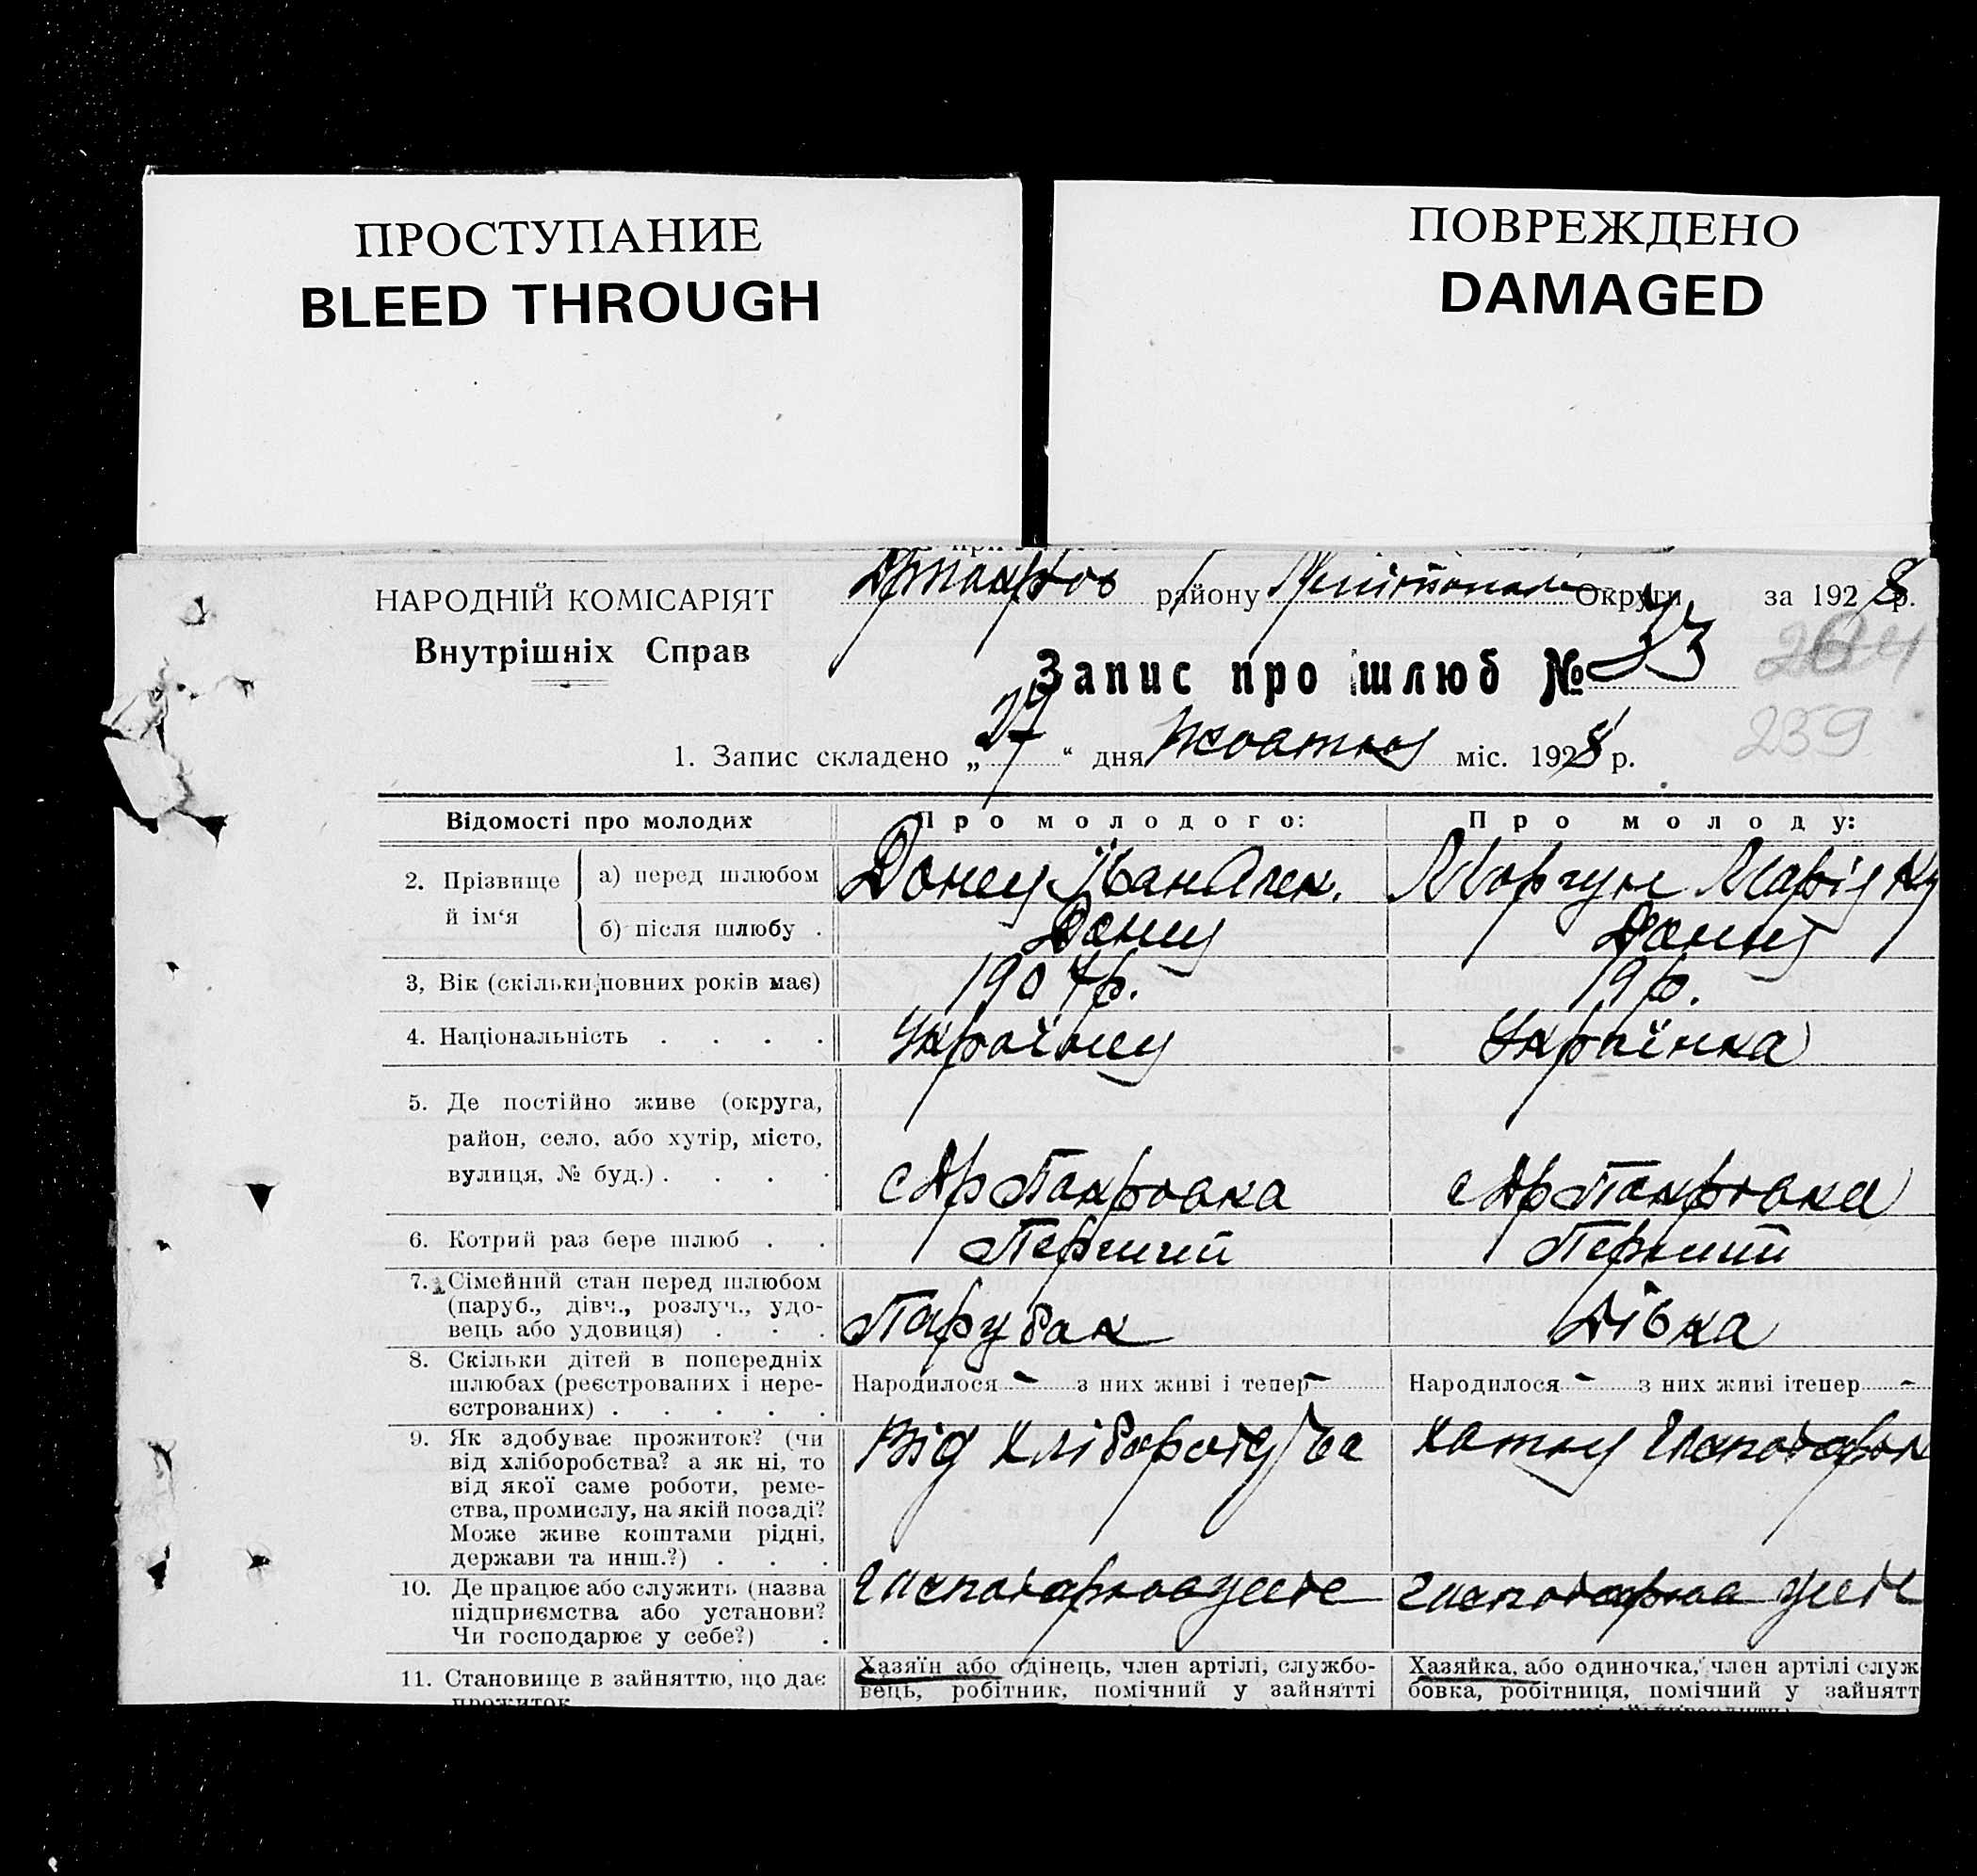 ПРОСТУПАНИЕ
BLEED THROUGH
ПОВРЕЖДЕНО
DAMAGED
НАРОДНІЙ КОМІСАРІЯТ
Внутрішніх Справ
району Округи за 1928 р.
Запис про шлюб № 33
204
259
1. Запис складено „27“ дня Жоатня міс. 1928 р.
Відомості про молодих
Про молодого:
Про молоду:
2. Прізвище й ім‘я
а) перед шлюбом
Донец Іван Алек.
Моргун Марія
б) після шлюбу .
Донец
Донец
3, Вік (скільки повних років має)
1907р.
19р.
4. Національність . . . .
Українец
Українка
5. Де постійно живе (округа,
район, село, або хутір, місто,
вулиця, № буд.) . . . .
с Др Покровка
с Др Покровка
6. Котрий раз бере шлюб . .
Перший
Перший
7. Сімейний стан перед шлюбом
(паруб., дівч., розлуч., удо-
вець або удовиця) . . .
Парубок
Дівка
8. Скільки дітей в попередніх
шлюбах (реєстрованих і нере-
єстрованих) . . . . .
Народилося - з них живі і тепер -
Народилося - з них живі ітепер -
9. Як здобуває прожиток? (чи
від хліборобства? а як ні, то
від якої саме роботи, реме-
ства, промислу, на якій посаді?
Може живе коштами рідні,
держави та инш.?) . . .
Від
10. Де працює або служить (назва
підприємства або установи?
Чи господарює у себе?) .
11. Становище в зайняттю, що дає
прожиток
Хазяїн або одінець, член артілі, службо-
вець, робітник, помічний у зайнятті
Хазяйка, або одиночка, член артілі служ
бовка, робітниця, помічний у зайнятт